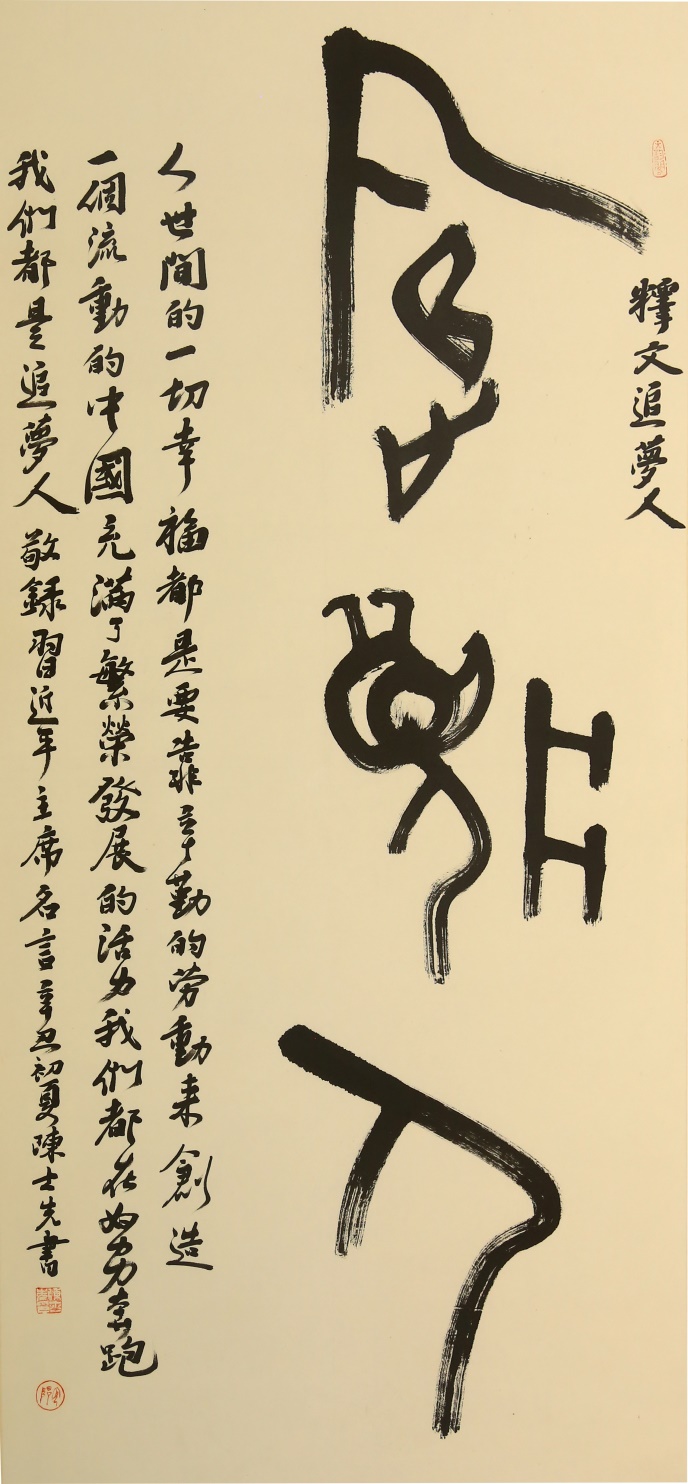 釋文追夢人
追夢人
人世間的一切幸福都是要靠辛勤的勞動来創造
一個流動的中國充滿了繁榮發展的活力我們都在努力奔跑
我們都是追夢人 敬録習近平主席名言辛丑初夏陳士先書